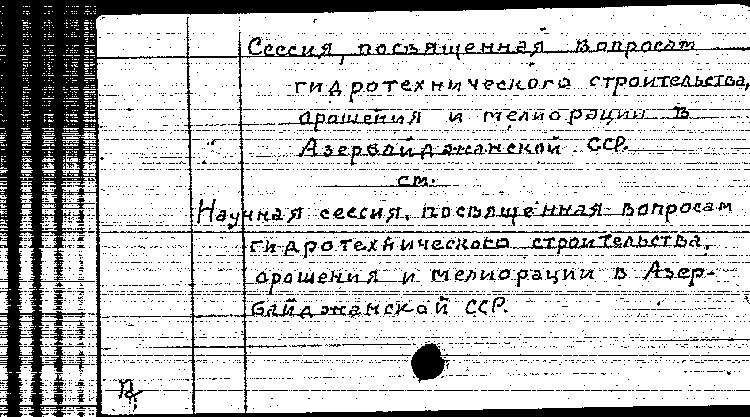 Сессия, посвященная вопросам
гидротехнического строительства,
орошения и мелиорации в
Азербайджанской ССР.
см.
Научная сессия, посвященная вопросам
гидротехнического строительства,
орошения и мелиорации в Азер-
байджанской ССР.